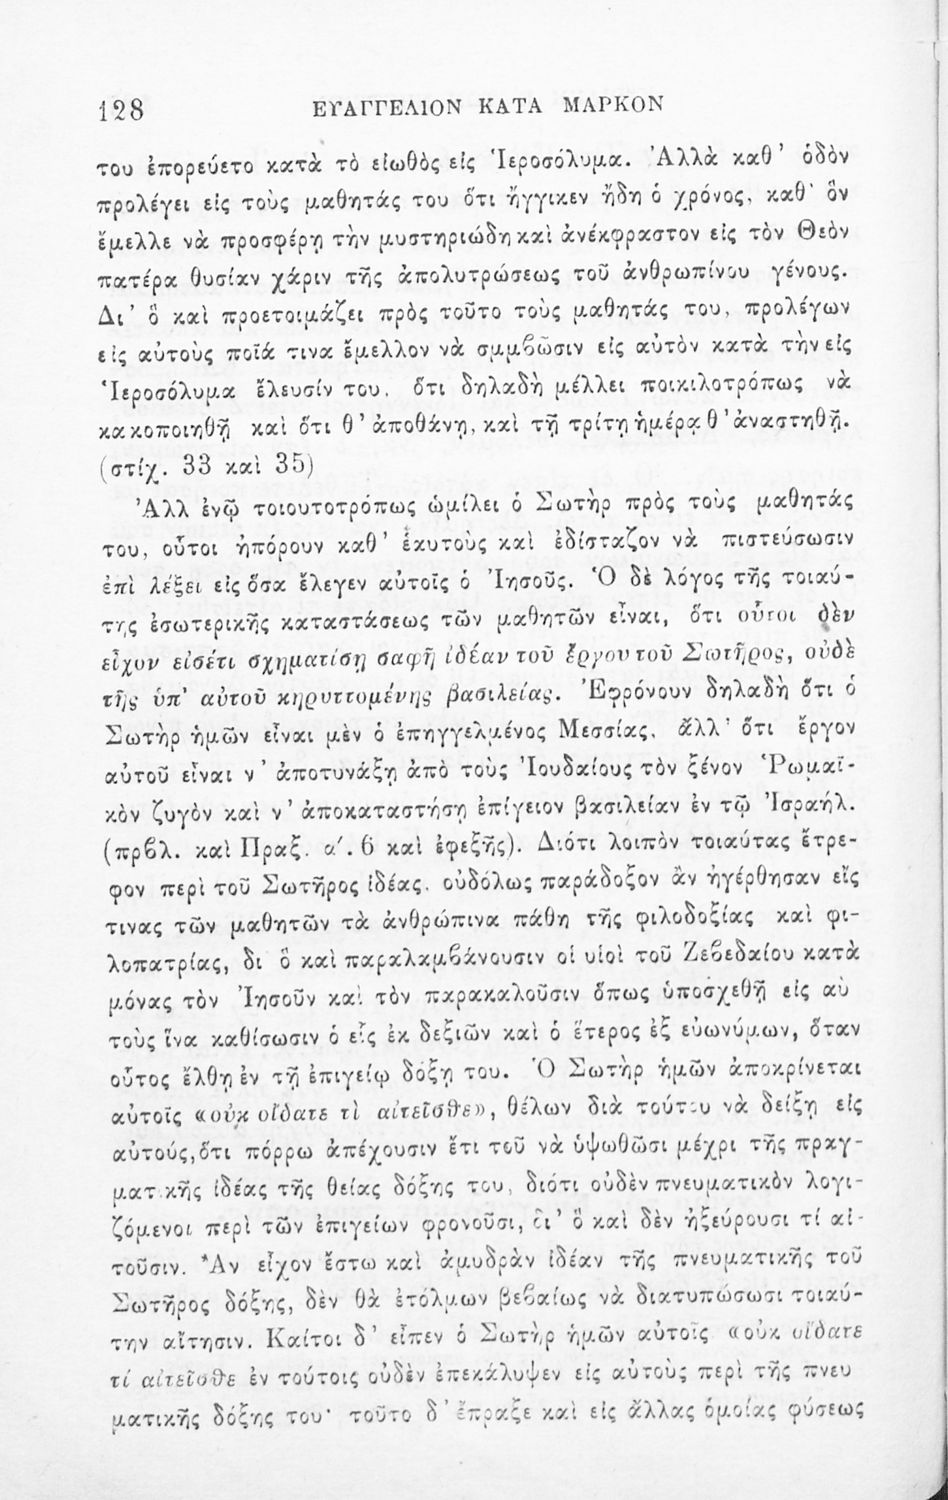 128 ΕΥΑΓΓΕΛΙΟΝ ΚΑΤΑ ΜΑΡΚΟΝ
του ἐπορεύετο κατὰ τὸ εἰωθὸς εἰς Ἱεροσόλυμα. Ἀλλὰ καθ’ ὁδὸν
προλέγει εἰς τοὺς μαθητάς του ὅτι ἤγγικεν ἤδη ὁ χρόνος, καθ’ ὃν
ἔμελλε νὰ προσφέρῃ τὴν μυστηριώδη καὶ ἀνέκφραστον εἰς τὸν Θεὸν
πατέρα θυσίαν χάριν τῆς ἀπολυτρώσεως τοῦ ἀνθρωπίνου γένους.
Δι’ ὃ καὶ προετοιμάζει πρὸς τοῦτο τοὺς μαθητάς του, προλέγων
εἰς αὐτοὺς ποῖά τινα ἔμελλον νὰ σμμβῶσιν εἰς αὐτὸν κατὰ τὴν εἰς
Ἱεροσόλυμα ἔλευσίν του, ὅτι δηλαδὴ μέλλει ποικιλοτρόπως νὰ
κακοποιηθῇ καὶ ὅτι θ’ ἀποθάνῃ, καὶ τῇ τρίτῃ ἡμέρᾳ θ’ ἀναστηθῇ.
(στίχ. 33 καὶ 35)
Ἀλλ ἐνῷ τοιουτοτρόπως ὡμίλει ὁ Σωτὴρ πρὸς τοὺς μαθητάς
του, οὗτοι ἠπόρουν καθ’ ἑαυτοὺς καὶ ἐδίσταζον νὰ πιστεύσωσιν
ἐπὶ λέξει εἰς ὅσα ἔλεγεν αὐτοῖς ὁ Ἰησοῦς. Ὁ δὲ λόγος τῆς τοιαύ-
της ἐσωτερικῆς καταστάσεως τῶν μαθητῶν εἶναι, ὅτι οὗτοι δὲν
εἶχον εἰσέτι σχηματίσῃ σαφῆ ἰδέαν τοῦ ἔργου τοῦ Σωτῆρος, οὐδὲ
τῆς ὑπ’ αὐτοῦ κηρυττομένης βασιλείας. Ἐφρόνουν δηλαδὴ ὅτι ὁ
Σωτὴρ ἡμῶν εἶναι μὲν ὁ ἐπηγγελμένος Μεσσίας, ἀλλ’ ὅτι ἔργον
αὐτοῦ εἶναι ν’ ἀποτυνάξῃ ἀπὸ τοὺς Ἰουδαίους τὸν ξένον Ῥωμαϊ-
κὸν ζυγὸν καὶ ν’ ἀποκαταστήσῃ ἐπίγειον βασιλείαν ἐν τῷ Ἰσραήλ.
(πρβλ. καὶ Πραξ. α΄. 6 καὶ ἐφεξῆς). Διότι λοιπὸν τοιαύτας ἔτρε-
φον περὶ τοῦ Σωτῆρος ἰδέας, οὐδόλως παράδοξον ἂν ἠγέρθησαν εἴς
τινας τῶν μαθητῶν τὰ ἀνθρώπινα πάθη τῆς φιλοδοξίας καὶ φι-
λοπατρίας, δι ὃ καὶ παραλαμβάνουσιν οἱ υἱοὶ τοῦ Ζεβεδαίου κατὰ
μόνας τὸν Ἰησοῦν καὶ τὸν παρακαλοῦσιν ὅπως ὑποσχεθῇ εἰς αὐ
τοὺς ἵνα καθίσωσιν ὁ εἷς ἐκ δεξιῶν καὶ ὁ ἕτερος ἐξ εὐωνύμων, ὅταν
οὗτος ἔλθῃ ἐν τῇ ἐπιγείῳ δόξῃ του. Ὁ Σωτὴρ ἡμῶν ἀποκρίνεται
αὐτοῖς «οὐκ οἴδατε τὶ αἰτεῖσθε», θέλων διὰ τούτου νὰ δείξῃ εἰς
αὐτούς, ὅτι πόρρω ἀπέχουσιν ἔτι τοῦ νὰ ὑψωθῶσι μέχρι τῆς πραγ-
ματικῆς ἰδέας τῆς θείας δόξης του, διότι οὐδὲν πνευματικὸν λογι-
ζόμενοι περὶ τῶν ἐπιγείων φρονοῦσι, δι’ ὃ καὶ δὲν ἠξεύρουσι τί αἰ-
τοῦσιν. Ἂν εἶχον ἔστω καὶ ἀμυδρὰν ἰδέαν τῆς πνευματικῆς τοῦ
Σωτῆρος δόξης, δὲν θὰ ἐτόλμων βεβαίως νὰ διατυπώσωσι τοιαύ-
την αἴτησιν. Καίτοι δ’ εἶπεν ὁ Σωτὴρ ἡμῶν αὐτοῖς «οὐκ οἴδατε
τί αἰτεῖσθε ἐν τούτοις οὐδὲν ἐπεκάλυψεν εἰς αὐτοὺς περὶ τῆς πνευ
ματικῆς δόξης του· τοῦτο δ’ ἔπραξε καὶ εἰς ἄλλας ὁμοίας φύσεως